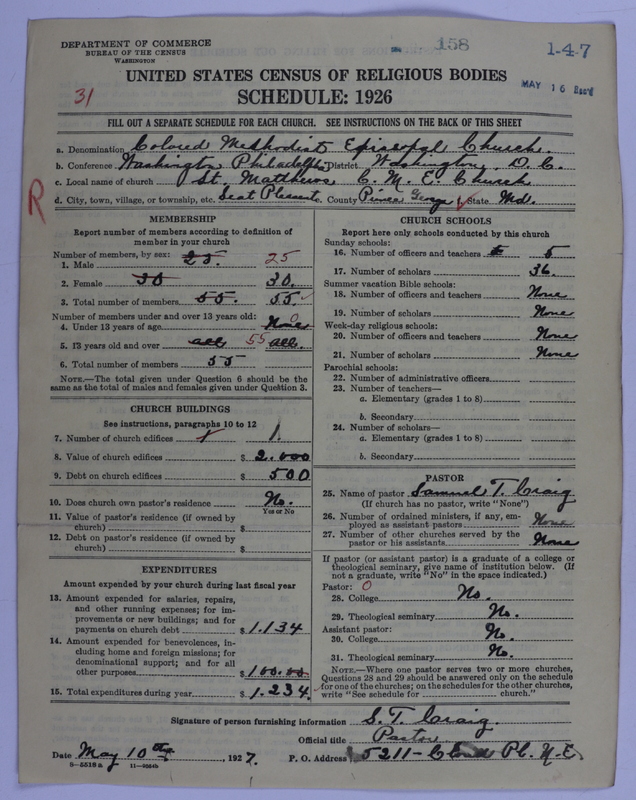 DEPARTMENT OF COMMERCE
BUREAU OF THE CENSUS
WASHINGTON
158
1-4-7
MAY 16
UNITED STATES CENSUS OF RELIGIOUS BODIES
31
SCHEDULE: 1926
FILL OUT A SEPARATE SCHEDULE FOR EACH CHURCH. SEE INSTRUCTIONS ON THE BACK OF THIS SHEET
a. Denomination Colored Methodist Episcopal Church.
b. Conference Washington Philadelphia District Washington, D.C.
c. Local name of church St. Matthews C. M. E. Church
R
d. City, town, village, or township, etc. Seat Pleasant County Prince George State Md.
MEMBERSHIP
Report number of members according to definition of
member in your church
Number of members, by sex:
1. Male 25. 25
2. Female 30 30.
3. Total number of members. 55. 55.
Number of members under and over 13 years old:
4. Under 13 years of age None 0
5. 13 years old and over all 55 all.
6. Total number of members 55
NOTE.—The total given under Question 6 should be the
same as the total of males and females given under Question 3.
CHURCH BUILDINGS
See instructions, paragraphs 10 to 12
7. Number of church edifices 1 1.
8. Value of church edifices $ 2.000
9. Debt on church edifices $ 500
10. Does church own pastor's residence No.
Yes or No
11. Value of pastor's residence (if owned by
church) $
12. Debt on pastor's residence (if owned by
church) $
EXPENDITURES
Amount expended by your church during last fiscal year
13. Amount expended for salaries, repairs,
and other running expenses; for im-
provements or new buildings; and for
payments on church debt $ 1.134
14. Amount expended for benevolences, in-
cluding home and foreign missions; for
denominational support; and for all
other purposes $ 100.00
15. Total expenditures during year $ 1.234.
CHURCH SCHOOLS
Report here only schools conducted by this church
Sunday schools:
16. Number of officers and teachers 5
17. Number of scholars 36.
Summer vacation Bible schools:
18. Number of officers and teachers None
19. Number of scholars None
Week-day religious schools:
20. Number of officers and teachers None
21. Number of scholars None
Parochial schools:
22. Number of administrative officers
23. Number of teachers—
a. Elementary (grades 1 to 8)
b. Secondary
24. Number of scholars—
a. Elementary (grades 1 to 8)
b. Secondary
PASTOR
25. Name of pastor Samuel T. Craig
(If church has no pastor, write "None")
26. Number of ordained ministers, if any, em-
ployed as assistant pastors None
27. Number of other churches served by the
pastor or his assistants. None
If pastor (or assistant pastor) is a graduate of a college or
theological seminary, give name of institution below. (If
not a graduate, write "No" in the space indicated.)
Pastor: 0
28. College No.
29. Theological seminary No.
Assistant pastor:
30. College No.
31. Theological seminary No.
NOTE.—Where one pastor serves two or more churches,
Questions 28 and 29 should be answered only on the schedule
for one of the churches; on the schedules for the other churches,
write "See schedule for church."
Signature of person furnishing information S. T. Craig.
Official title Pastor
Date May 10th, 1927. P. O. Address 5211- Pl. N.E.
8-5518a 11-9054b